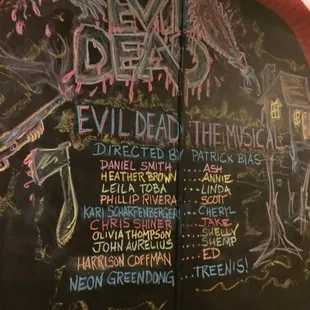 EVIL
DEAD
EVIL DEAD THE MUSICAL
DIRECTED BY PATRICK BIAS
DANIEL SMITH ....ASH
HEATHER BROWN ....ANNIE
LEILA TOBA ....LINDA
PHILLIP RIVERA ....SCOTT
KARI SCHARFENBERGER ....CHERYL
CHRIS SHINER ....JAKE
OLIVIA THOMPSON ....SHELLY
JOHN AURELIUS ....SHEMP
HARRISON COFFMAN ....ED
NEON GREENDONG ....TREENIS!